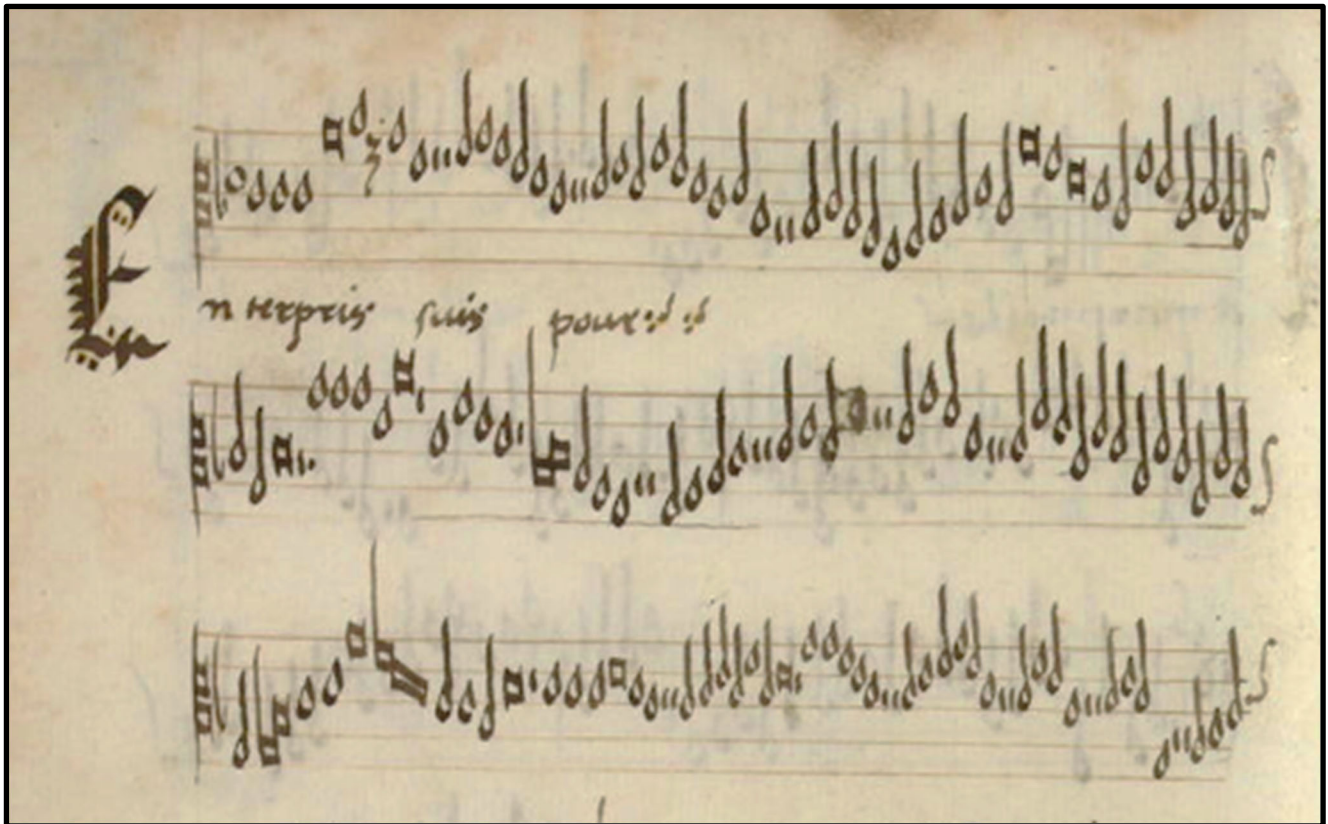 En terpris suis pour